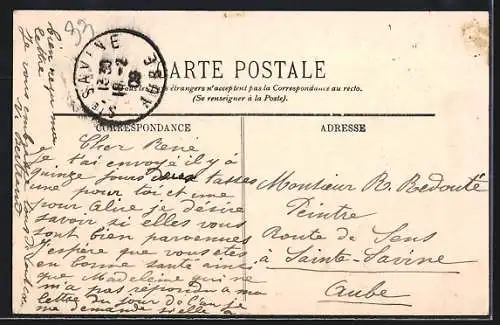 83
STE SAVINE
AUBE
13 30
18 - 2
09
CARTE POSTALE
étrangers n'acceptent pas la Correspondance au recto.
(Se renseigner à la Poste).
CORRESPONDANCE
ADRESSE
Cher René
Je t'ai envoyé il y à
quinze jours deux tasses
une pour toi et une
pour Alice je désire
savoir si elles vous
sont bien parvenues
J'espère que vous etes
en bonne santé ainsi
que Madeleine qui ne
m'a pas répondu à ma
lettre du jour de l'an je
me demande si elle a
bien reçu ma
lettre
Je vous embrasse
Monsieur R. Redouté
Peintre
Route de Sens
à Sainte-Savine
Aube